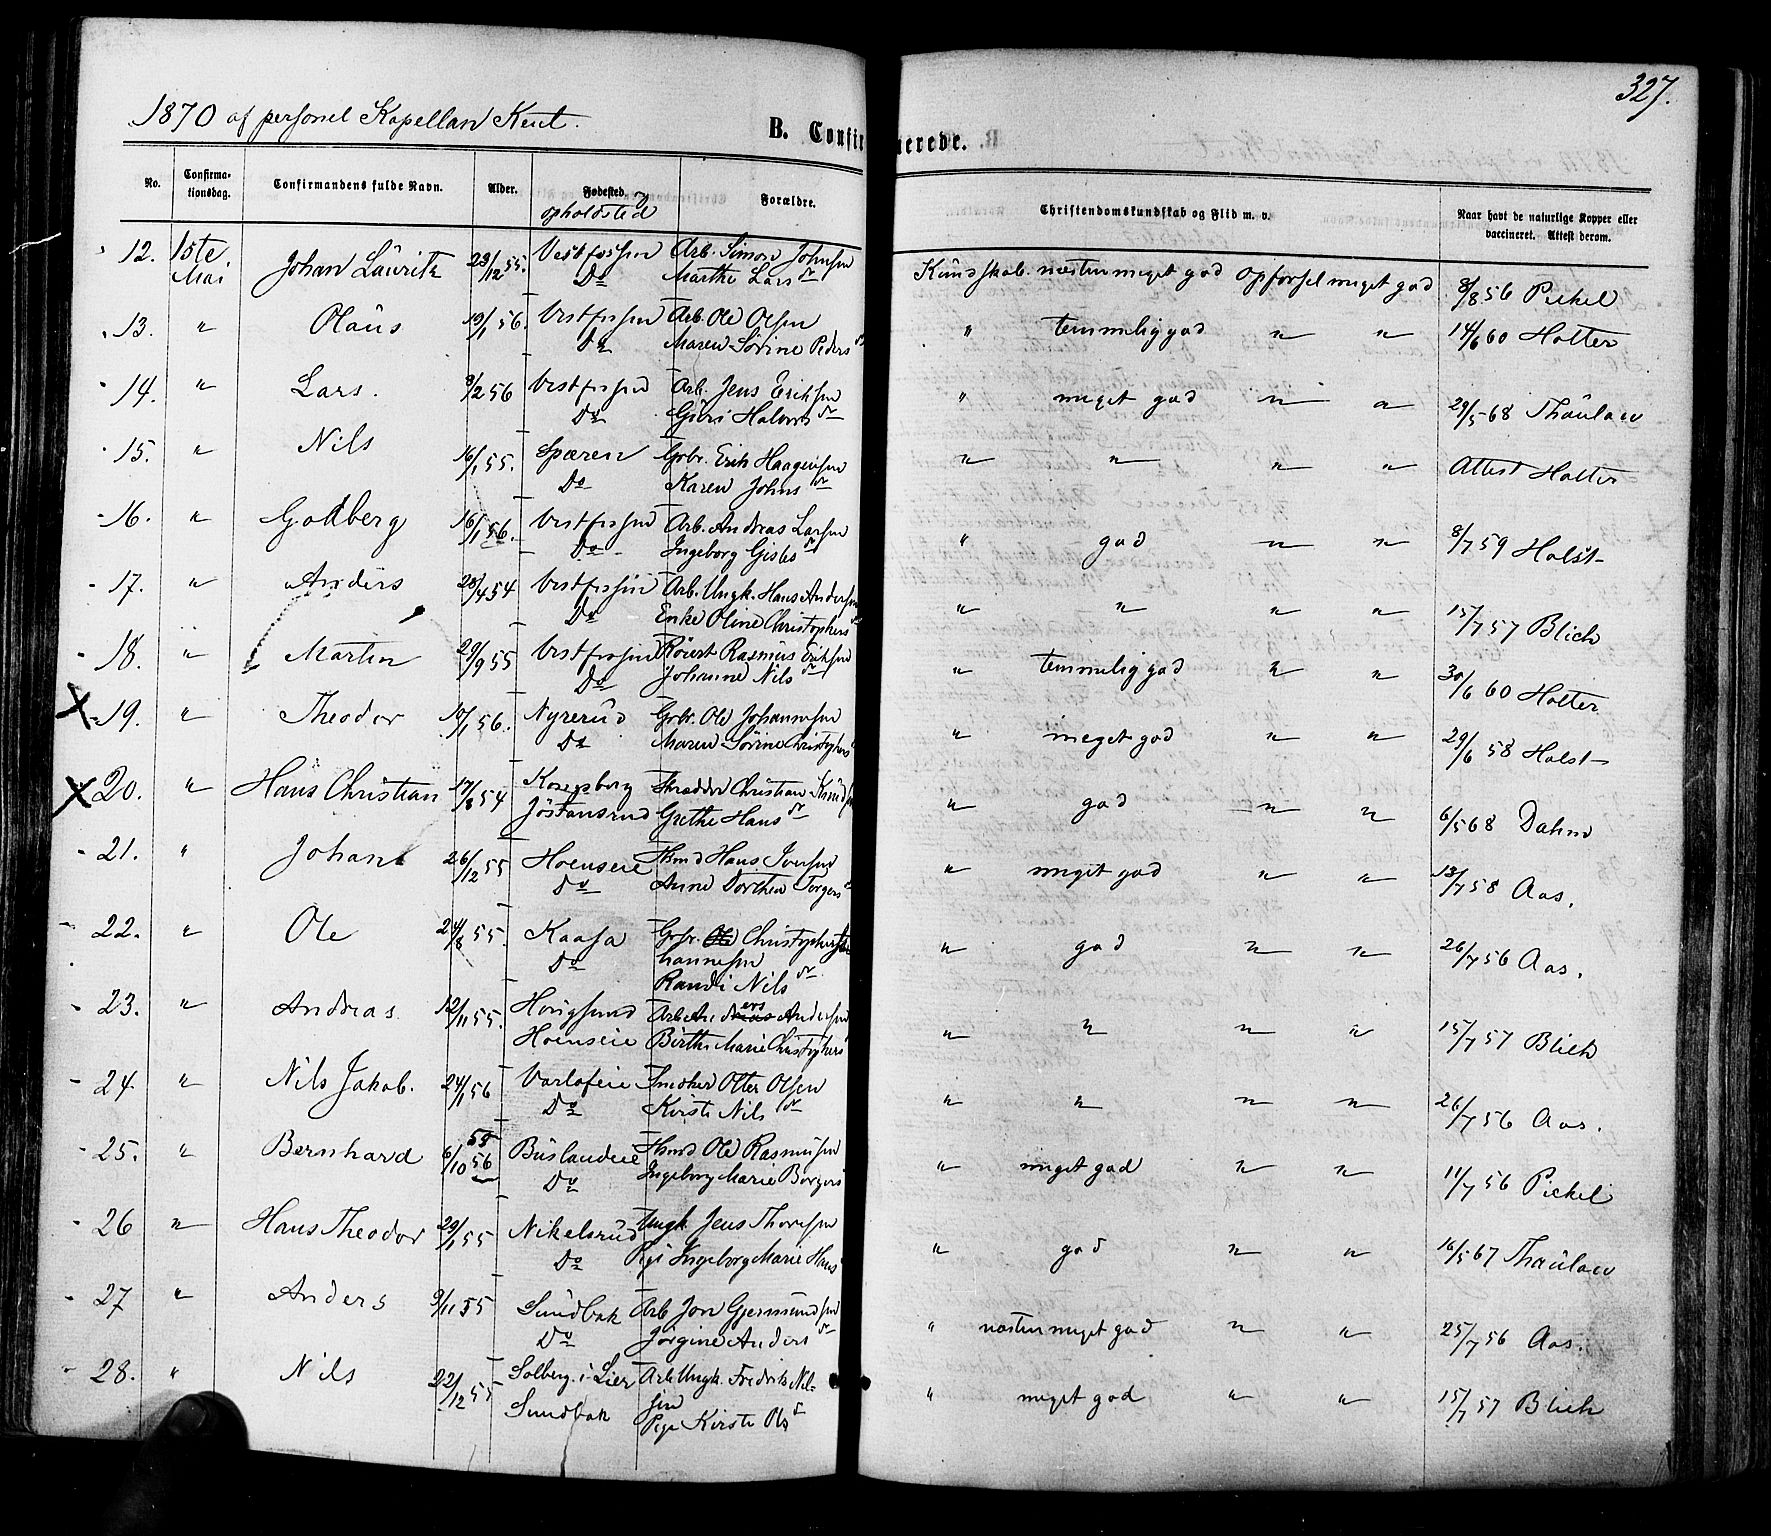 327.
1870 af personel Kapellan Keut.
B. Confirmerede.
No. Confirmationsdag. Confirmandens fulde Navn. Alder. Fødested og opholdsted Forældre. Christendomskundskab og Flid m. v. Naar havt de naturlige Kopper eller vaccineret. Attest derom.
12. 1ste Mai Johan Lauritz 23/12 55. Vestfossen Arb. Simon Johnsen Kundskab. næsten meget god opførsel meget god 8/8 56 Pickel
Do Marthe Larsdr
13. " Olaus 19/1 56. Vestfossen Arb. Ole Olsen " temmelig god " " 14/6 60 Holter
Do Maren Sørine Pedersdr
14. " Lars. 8/2 56 Vestfossen Arb. Jens Eriksen " meget god " " 29/5 68 Thaulow
Do Guri Halvorsdr
15. " Nils 16/1 55. Spæren Grbr. Erik Haagensen " " " " Attest Holter
Do Karen Johnsdr
16. " Godberg 16/1 56. Vestfossen Arb. Andreas Larsen " god " " 8/7 59 Holst
Do Ingeborg Gislesdr
17. " Anders 28/4 54 Vestfossen Arb. Ungk. Hans Andersen " " " " 15/7 57 Blich
Do Enke Oline Christophersdr
18. " Martin 29/9 55 Vestfossen Rasmus Eriksen " temmelig god " " 30/6 60 Holter
Do Johanne Nilsdr
19. " Theodor 10/1 56. Nyrerud Grbr. Ole Johannesen " meget god " " 29/6 58 Holst
Do Maren Sørine Christophers
20. " Hans Christian 17/8 54 Kongsberg Skrædder Christian Knudsen " god " " 6/5 68 Dahm
Jøstansrud Grethe Hansdr
21. " Johan 26/12 55 Hoenseie Hsmd Hans Iversen " meget god " " 13/7 58 Aas.
Do Anne Dorthea Torgersd
22. " Ole 24/8 55. Kaasa Grbr. Ole Christopher " god " " 26/7 56 Aas.
Do hannesen
Randi Nilsdr
23. " Andreas. 12/11 55. Hougsund Arb. Anders Andersen " " " " 15/7 57 Blich
Hoenseie Birthe Marie Christophers
24. " Nils Jakob. 24/1 56 Varloeie Snedker Otter Olsen " " " " 26/7 56 Aas.
Do Kirsti Nilsdr
25. " Bernhard 6/10 55 56 Buslandeie Hsmd Ole Rasmusen " meget god " " 11/7 56 Pickel
Do Ingeborg Marie Borgers
26 " Hans Theodor 29/1 55 Nikelsrud Ungk. Jens Thoresen " god " " 16/5 67 Thaulow
Do Pige Ingeborg Marie Hans
27 " Anders 9/11 55 Sundbak Arb Jon Gjermundsen " næsten meget god " " 25/7 56 Aas.
Do Jørgine Andersdr
28. " Nils 22/12 55 Solberg i Lier Arb Ungk. Fredrik Nil- " meget god " " 15/7 57 Blich
Sundbak sen
Pige Kirsti Olsd